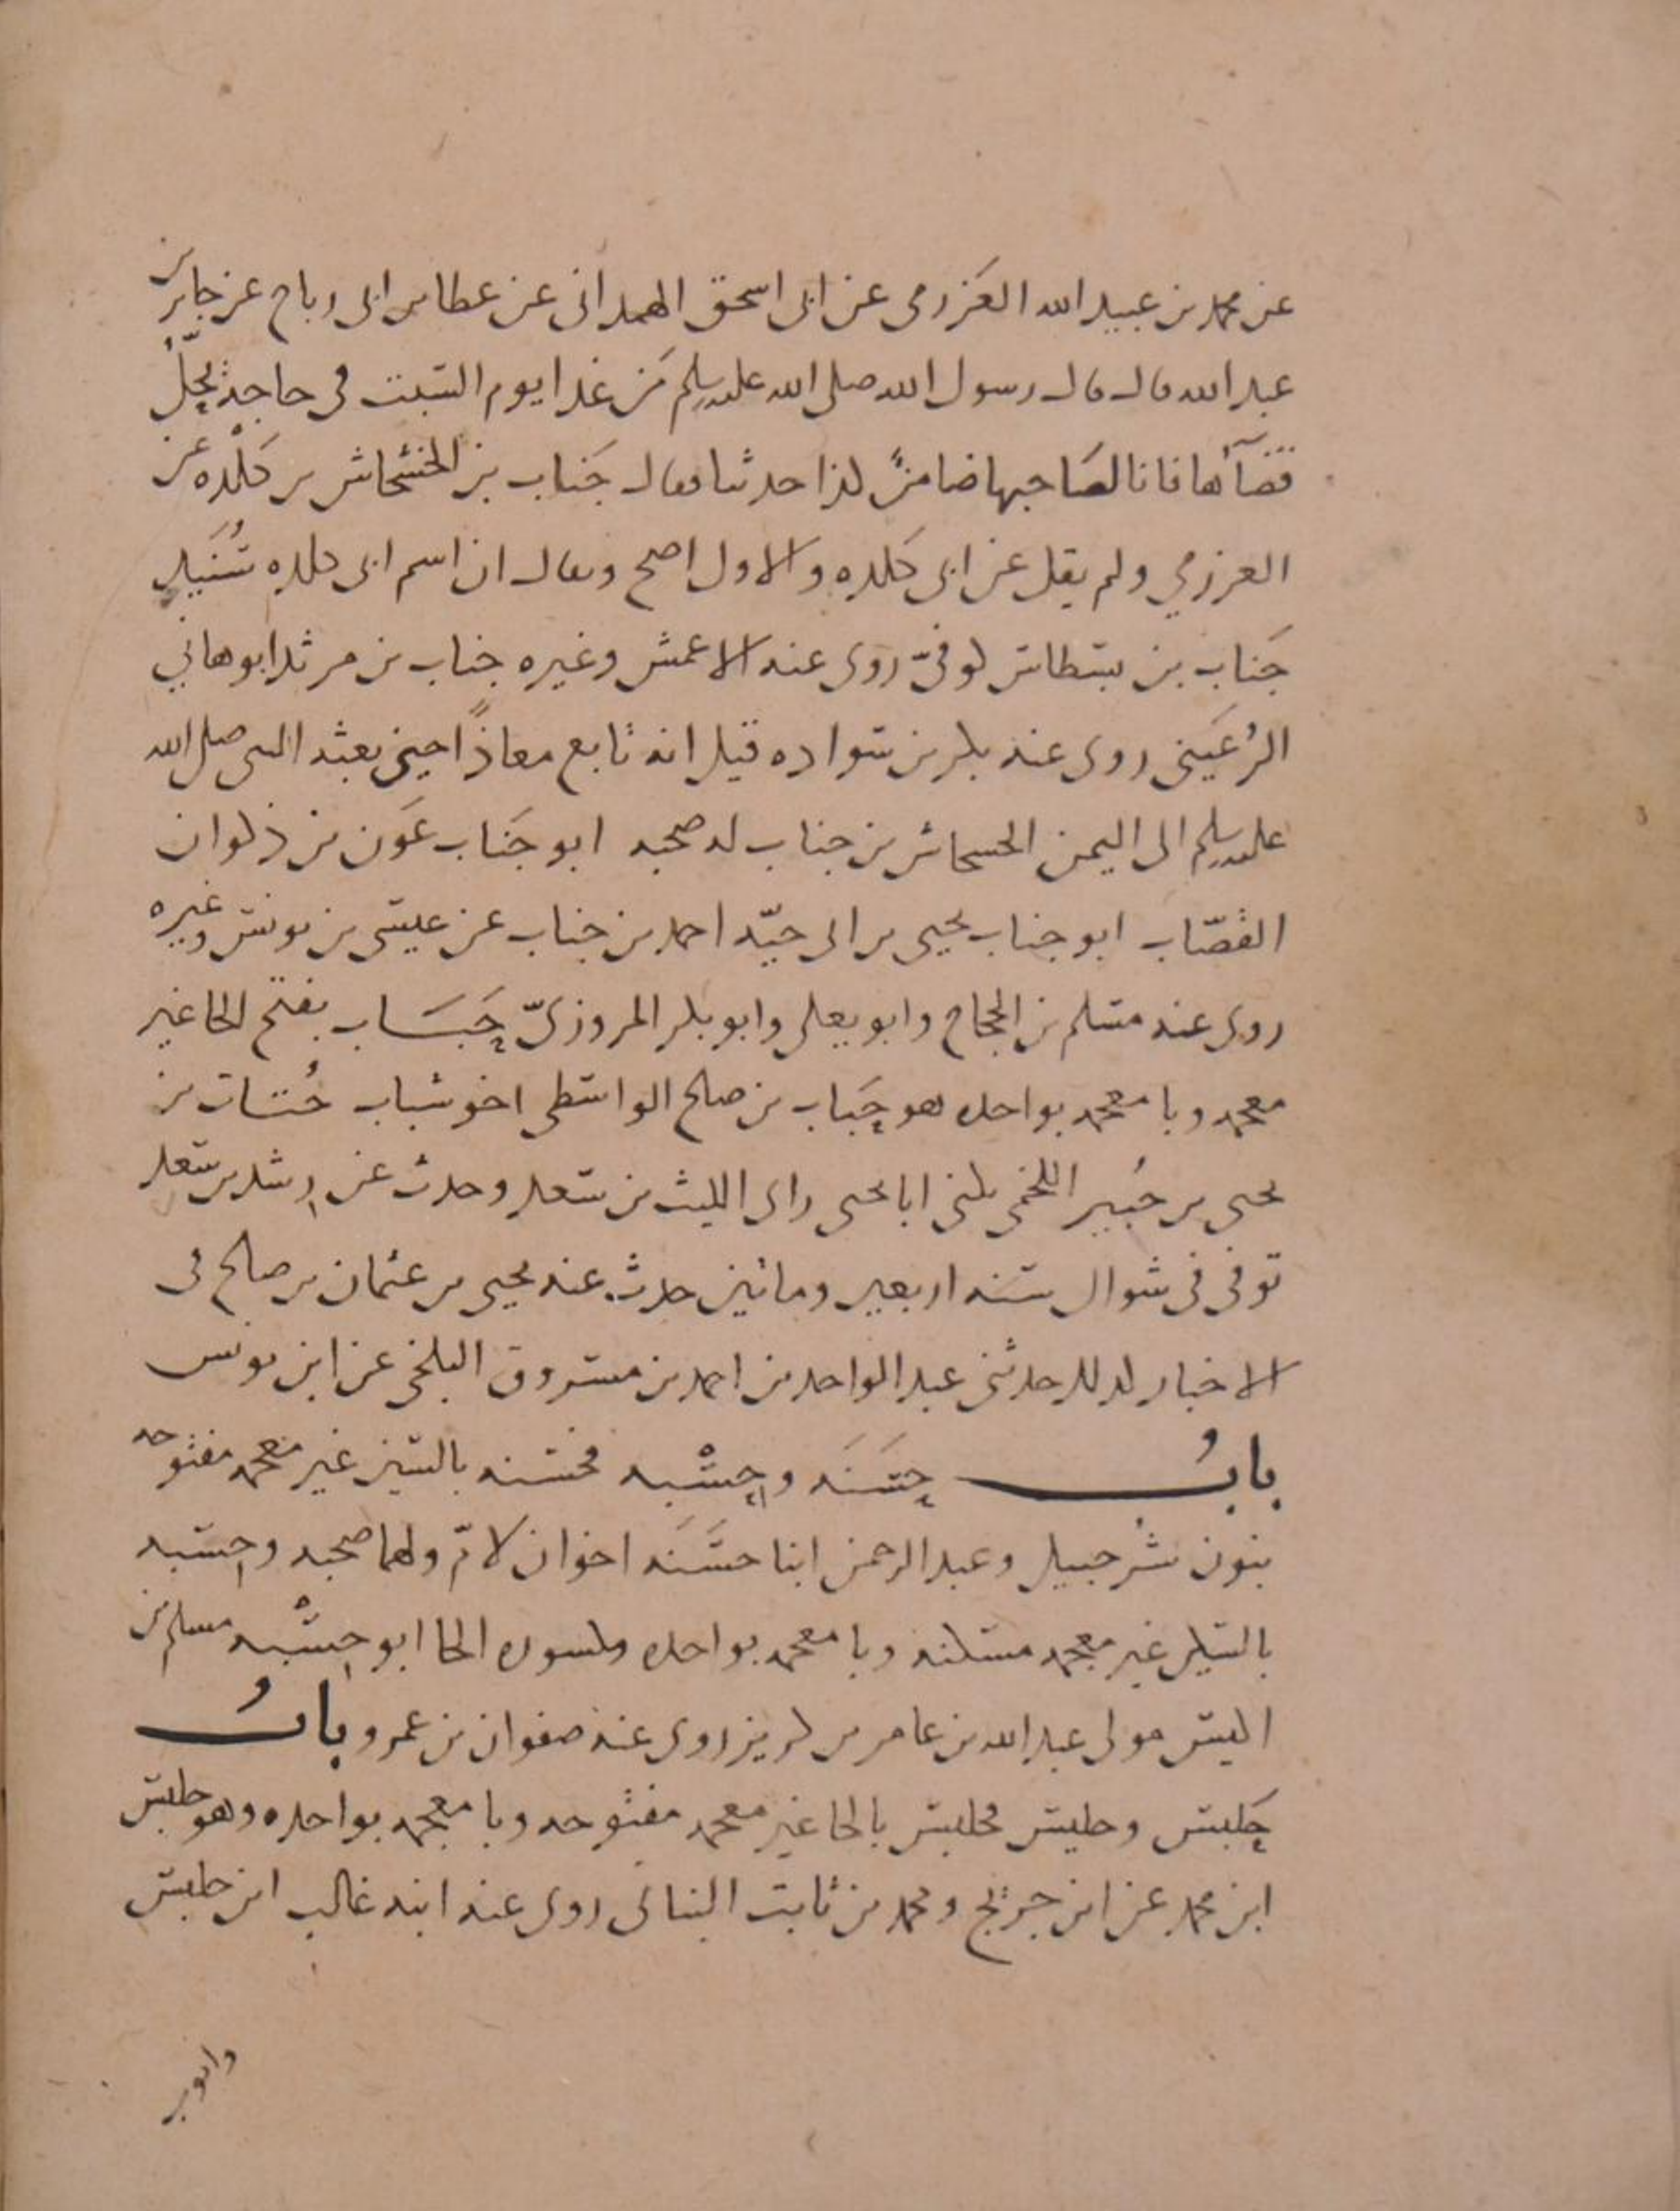 عن محمد بن عبيد الله العَزرمى عن ابى اسحق الهمدانى عن عطا بن ابى رباح عن جابر بن
عبد الله قال قال رسول الله صلى الله عليه وسلم مَن غدا يوم السَبت فى حاجةٍ يحِلّ
قضآهَا فانا لصَاحبها ضامنٌ كذا حدثنا وقال جَناب بن الخشخاش بن كَلْده عن
العرزمي ولم يقل عن ابى كَلده والاول اصح ويقال ان اسم ابى كلده سُنَيد
جَناب بن بسطاس كوفىّ روى عنه الاعمش وغيره جناب بن مرثد ابو هاني
الرُعَينى روى عنه بكر بن سواده قيل انه تابع معاذًا حين بعثه النبى صلى الله
عليه وسلم الى اليمن الخسخاش بن جناب له صحبه ابو جَناب عَون بن ذكوان
القصّاب ابو جناب يحيى بن ابى حيّه احمد بن جناب عن عيسى بن يونس وغيره
روى عنه مسلم بن الحجاج وابو يعلى وابو بكر المروزىّ حَبَاب بفتح الحا غير
معجمه وبا معجمه بواحده هو حَبَاب بن صلح الواسطى اخو شباب حُتات بن
يحيى بن جُبير اللخمى يكنى ابا يحيى راى الليث بن سعد وحدث عن رشد بن سعد
توفى فى شوال سَنه اربعين ومائتين حدث عنه يحيى بن عثمان بن صالح فى
الاخبار له كذلك حدثنى عبد الواحد بن احمد بن مسروق البلخى عن ابن يونس
بابُ حَسَنَه وحِسْبه فحسنه بالسين غير معجمه مفتوحه
بنون شُرحبيل وعبد الرحمن ابنا حسَنَه اخوان لامّ ولهما صحبه وحِسبه
بالسين غير معجمه مسكنه وبا معجمه بواحده ومكسوره الحا ابو حِسْبه مسلم بن
اكيس مولى عبد الله بن عامر بن كريز روى عنه صفوان بن عمرو بابُ
حَلبس وحليس فحلبس بالحا غير معجمه مفتوحه وبا معجمه بواحده وهو حلبس
ابن محمد عن ابن جريج ومحمد بن ثابت البنانى روى عنه ابنه غالب ابن حلبس
وايوب